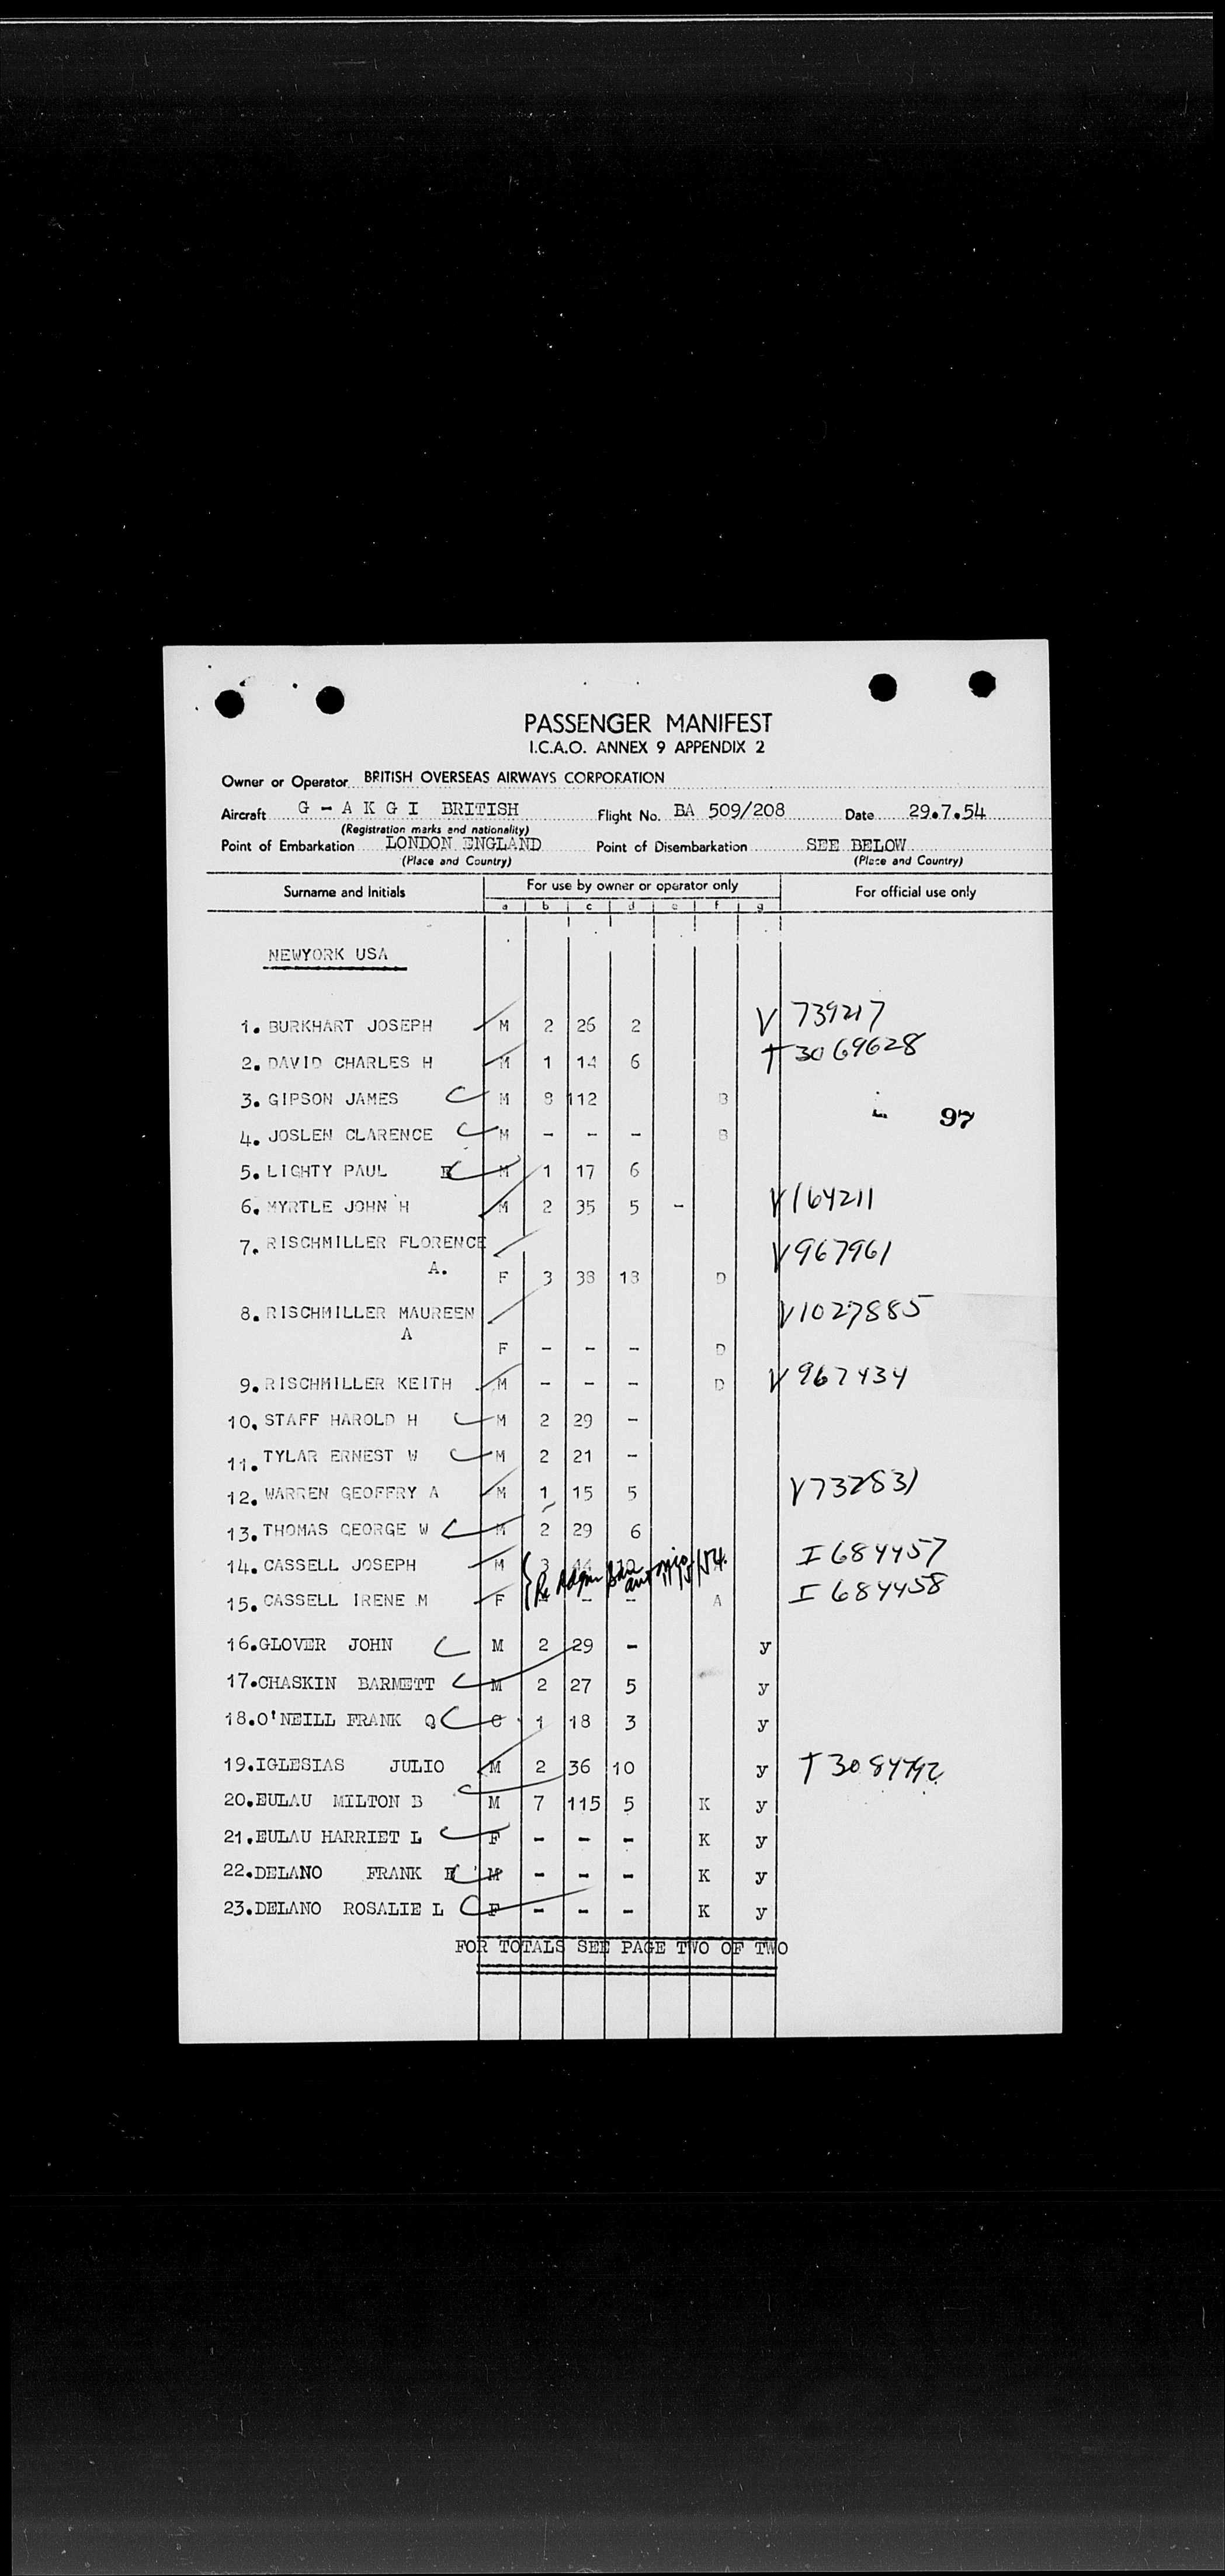 PASSENGER MANIFEST
I.C.A.O. ANNEX 9 APPENDIX 2
Owner or Operator BRITISH OVERSEAS AIRWAYS CORPORATION
Aircraft G - A K G I BRITISH Flight No. BA 509/208 Date 29.7.54
(Registration marks and nationality)
Point of Embarkation LONDON ENGLAND Point of Disembarkation SEE BELOW
(Place and Country) (Place and Country)
Surname and Initials For use by owner or operator only For official use only
a b c d e f g
NEWYORK USA
1. BURKHART JOSEPH M 2 26 2 V 739217
2. DAVID CHARLES H M 1 14 6 T 3069628
3. GIPSON JAMES C M 8 112 B
97
4. JOSLEN CLARENCE C M - - - B
5. LIGHTY PAUL E C M 1 17 6
6. MYRTLE JOHN H M 2 35 5 - V164211
7. RISCHMILLER FLORENCE V967961
A. F 3 38 18 D
8. RISCHMILLER MAUREEN V1027885
A
F - - - D
9. RISCHMILLER KEITH M - - - D V967434
10. STAFF HAROLD H C M 2 29 -
11. TYLAR ERNEST W C M 2 21 -
12. WARREN GEOFFRY A M 1 15 5 V732831
13. THOMAS GEORGE W C M 2 29 6
14. CASSELL JOSEPH M 3 44 I 684457
Re San Antonio
15. CASSELL IRENE M F - - - A I 684458
16. GLOVER JOHN C M 2 29 - y
17. CHASKIN BARMETT C M 2 27 5 y
18. O'NEILL FRANK Q C C 1 18 3 y
19. IGLESIAS JULIO M 2 36 10 y T 3084792
20. EULAU MILTON B C M 7 115 5 K y
21. EULAU HARRIET L C F - - - K y
22. DELANO FRANK E C M - - - K y
23. DELANO ROSALIE L C F - - - K y
FOR TOTALS SEE PAGE TWO OF TWO